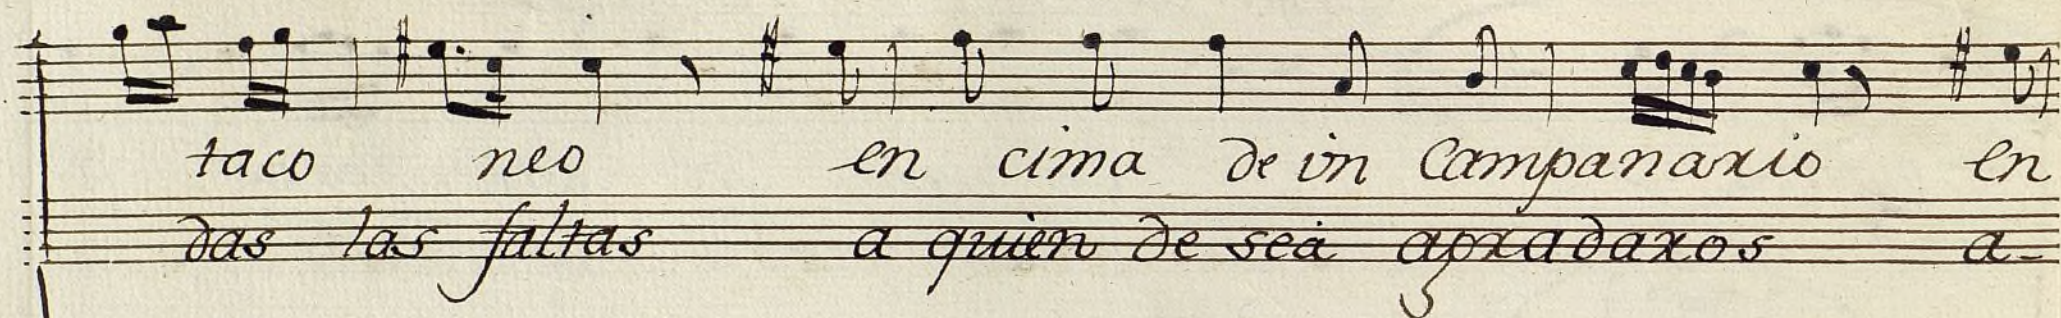 taco neo en cima de un Campanario en
das las faltas a quien de sea agradaros a-